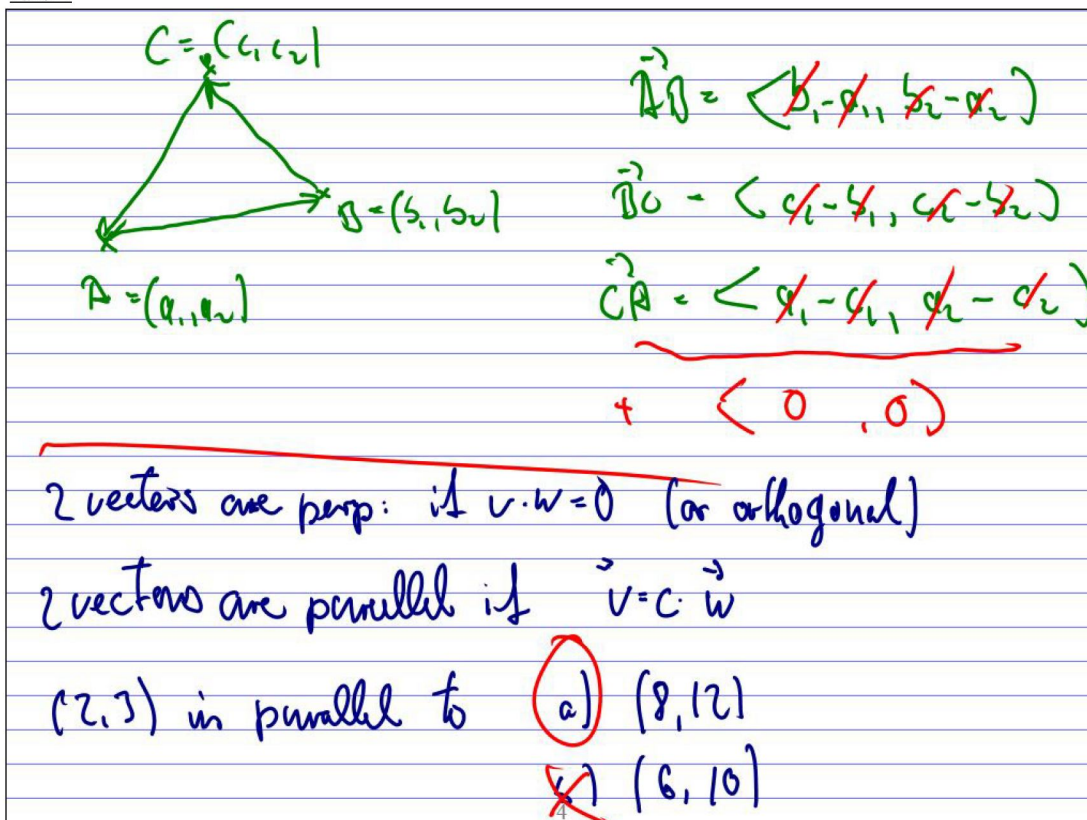 C = (c₁, c₂)
B = (b₁, b₂)
A = (a₁, a₂)
AB = <b₁-a₁, b₂-a₂)
BC = <c₁-b₁, c₂-b₂)
CA = <a₁-c₁, a₂-c₂)
+ <0, 0)
2 vectors are perp: if v·w=0 (or orthogonal)
2 vectors are parallel if v=c·w
(2,3) is parallel to a) (8,12)
b) (6,10)
4